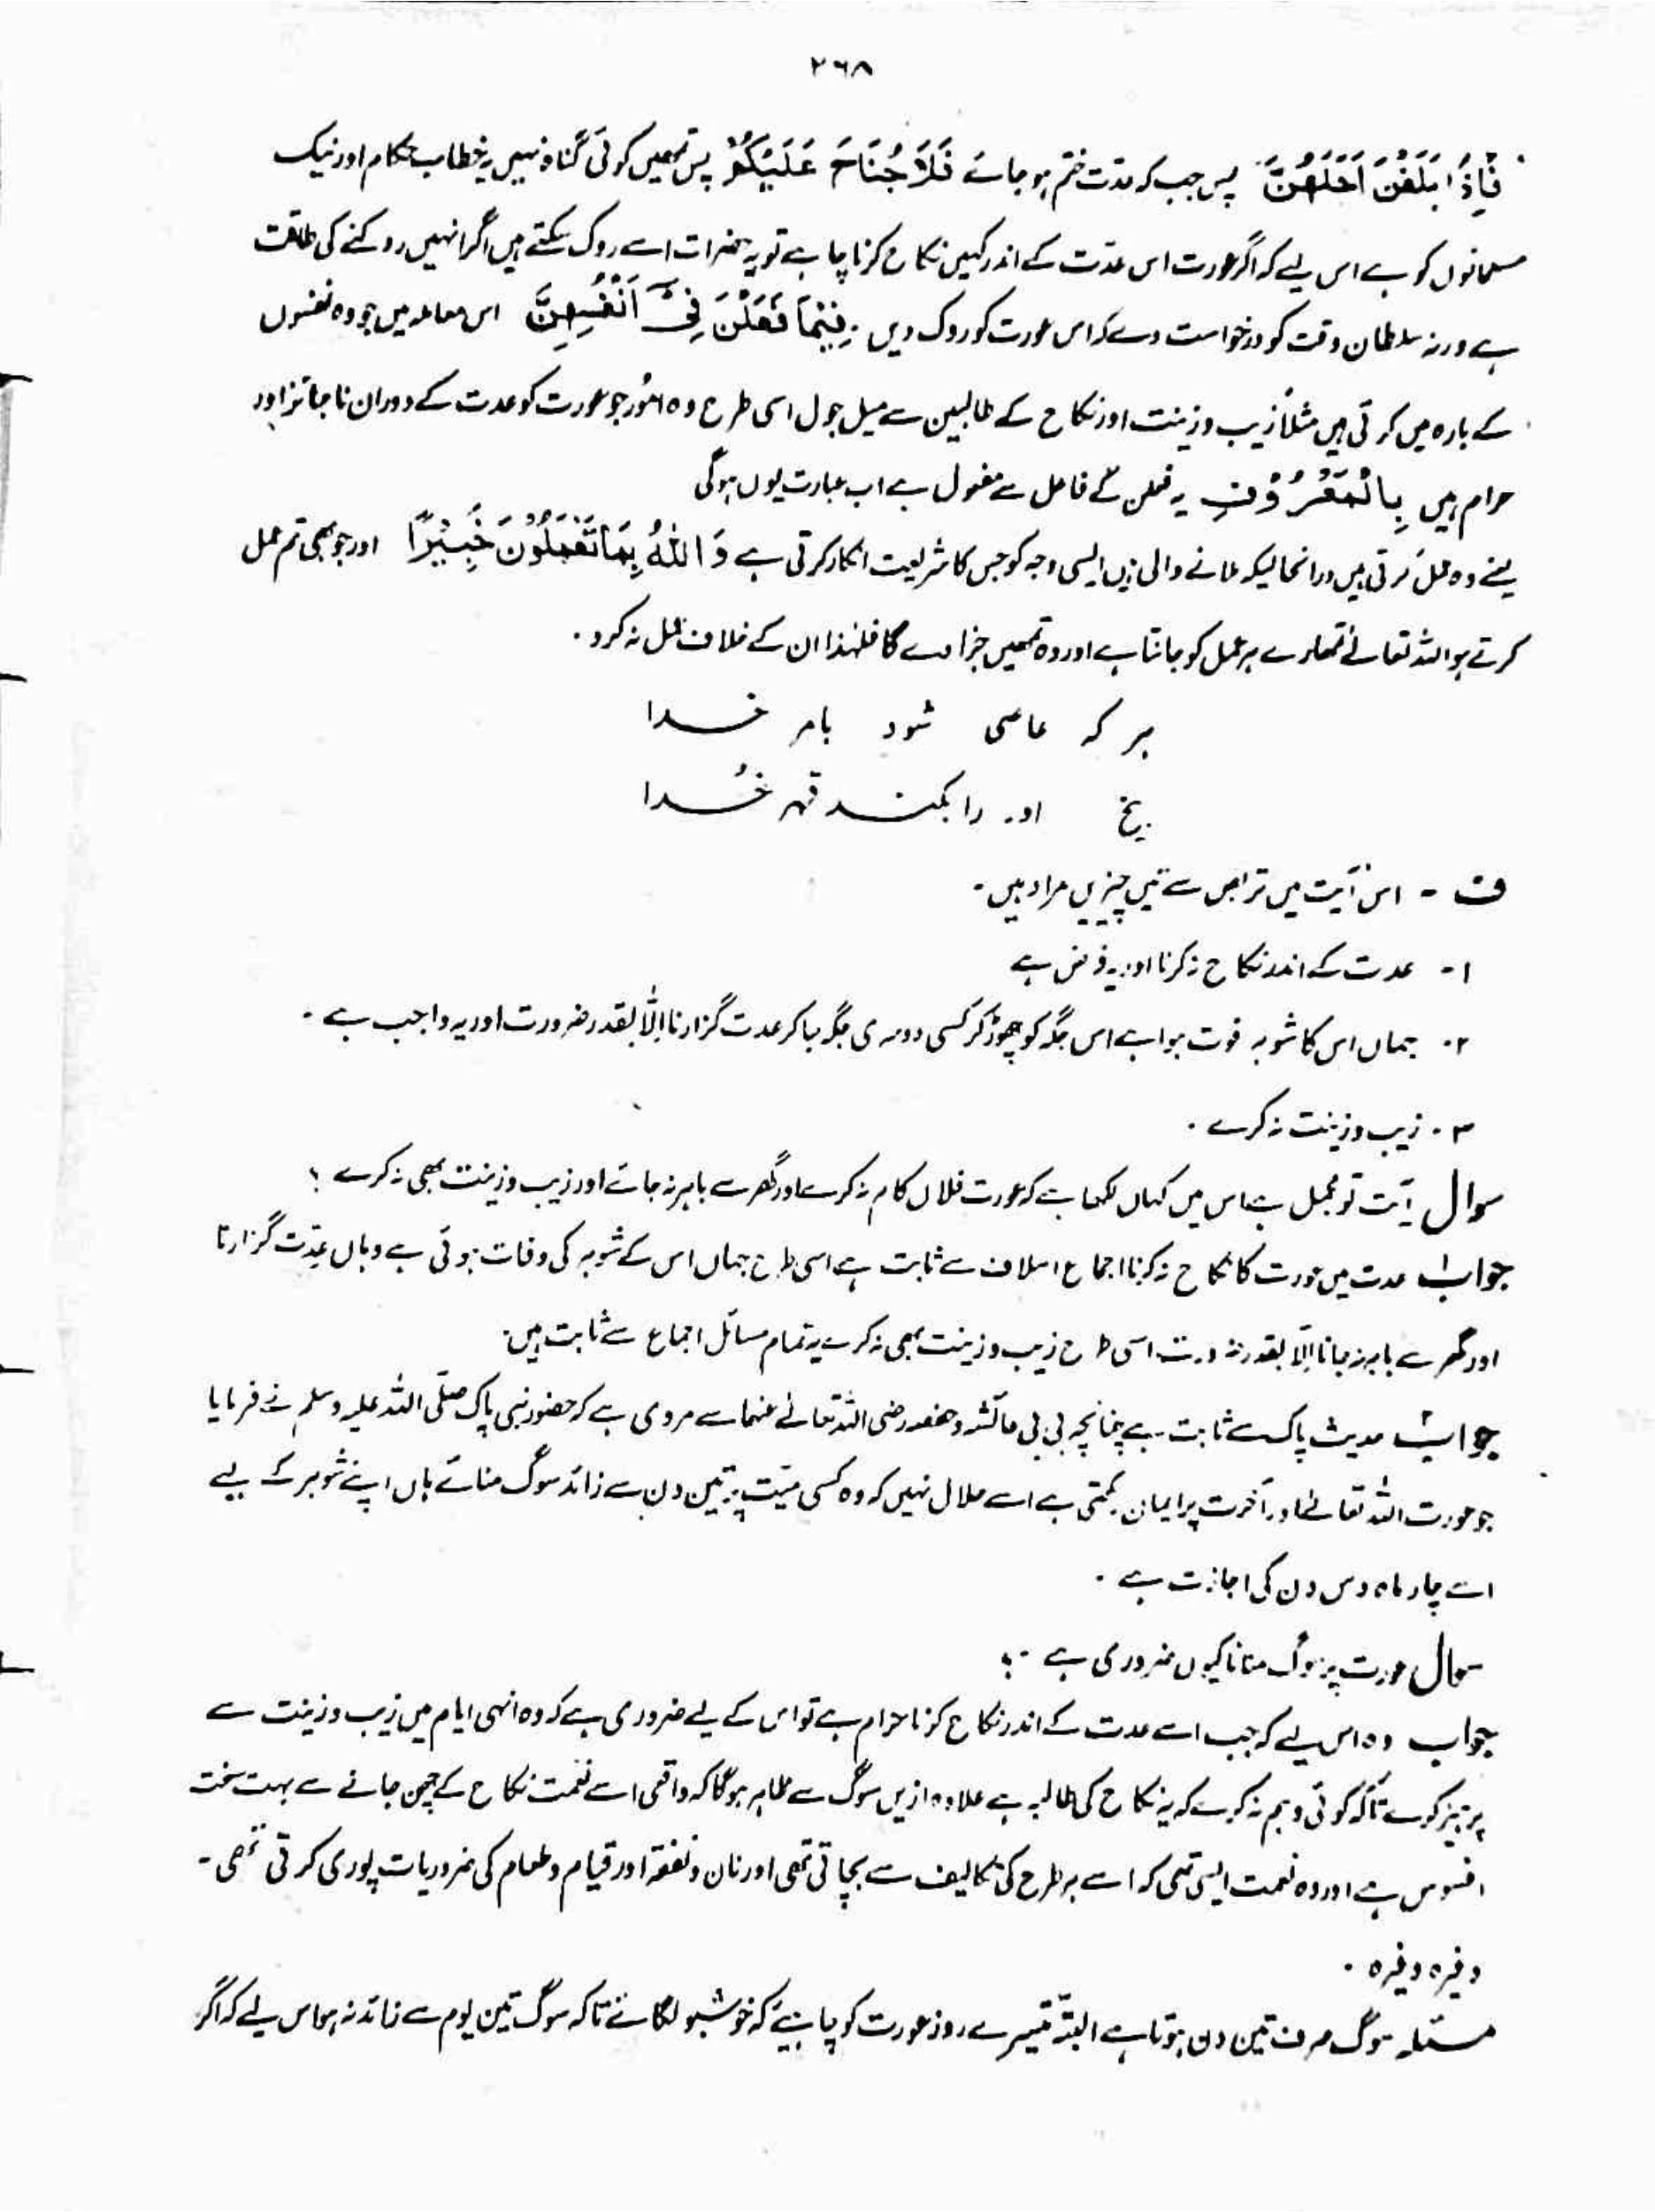 ۲۶۸
فَاِذَا بَلَغْنَ اَجَلَهُنَّ پس جب کہ مدت ختم ہو جائے فَلَا جُنَاحَ عَلَيْكُمْ پس تمھیں کوئی گناہ نہیں یہ خطاب حکام اور نیک
مسلمانوں کو ہے اس لیے کہ اگر عورت اس عدّت کے اندر کہیں نکاح کرنا چاہے تو یہ حضرات اسے روک سکتے ہیں اگر انہیں روکنے کی طاقت
ہے ورنہ سلطان وقت کو درخواست دے کہ اس عورت کو روک دیں . فِيْمَا فَعَلْنَ فِيْٓ اَنْفُسِهِنَّ اس معاملہ میں جو وہ نفسوں
کے بارہ میں کرتی ہیں مثلاً زیب و زینت اور نکاح کے طالبین سے میل جول اسی طرح وہ امُور جو عورت کو عدت کے دوران ناجائز اور
حرام ہیں بِالْمَعْرُوْفِ یہ فعلن کے فاعل سے مفعول ہے اب عبارت یوں ہوگی
یعنے وہ عمل کرتی ہیں درانحالیکہ ملانے والی ہیں ایسی وجہ کو جس کا شریعت انکار کرتی ہے وَاللّٰهُ بِمَا تَعْمَلُوْنَ خَبِيْرًا اور جو بھی تم عمل
کرتے ہو اللہ تعالےٰ تمھارے ہر عمل کو جانتا ہے اور وہ تمھیں جزا دے گا فلہٰذا ان کے خلاف عمل نہ کرو .
ہر کہ عاصی شود بامر خدا
بیخ او را بکند قہر خُدا
ف - اس آیت میں تراجل سے تین چیزیں مراد ہیں -
۱- عدت کے اندر نکاح نہ کرنا اور یہ فرض ہے
۲- جہاں اس کا شوہر فوت ہوا ہے اس جگہ کو چھوڑ کر کسی دوسری جگہ جا کر عدت گزارنا اِلّا بقدر ضرورت اور یہ واجب ہے .
۳- زیب و زینت نہ کرے .
سوال آیت تو مجمل ہے اس میں کہاں لکھا ہے کہ عورت فلاں کام نہ کرے اور گھر سے باہر نہ جائے اور زیب و زینت بھی نہ کرے ؟
جواب ۱ عدت میں عورت کا نکاح نہ کرنا اجماع اسلاف سے ثابت ہے اسی طرح جہاں اس کے شوہر کی وفات ہوئی ہے وہاں عدّت گزارنا
اور گھر سے باہر نہ جانا اِلّا بقدر ضرورت اسی طرح زیب و زینت بھی نہ کرے یہ تمام مسائل اجماع سے ثابت ہیں.
جواب ۲ حدیث پاک سے ثابت ہے چنانچہ بی بی عائشہ و حفصہ رضی اللہ تعالےٰ عنہما سے مروی ہے کہ حضور نبی پاک صلّی اللہ علیہ وسلم نے فرمایا
جو عورت اللہ تعالےٰ اور آخرت پر ایمان رکھتی ہے اسے حلال نہیں کہ وہ کسی میّت پر تین دن سے زائد سوگ منائے ہاں اپنے شوہر کے لیے
اسے چار ماہ دس دن کی اجازت ہے .
سوال عورت پر سوگ منانا کیوں ضروری ہے ؟
جواب وہ اس لیے کہ جب اسے عدت کے اندر نکاح کرنا حرام ہے تو اس کے لیے ضروری ہے کہ وہ انہی ایام میں زیب و زینت سے
پرہیز کرے تاکہ کوئی وہم نہ کرے کہ یہ نکاح کی طالبہ ہے علاوہ ازیں سوگ سے ظاہر ہوگا کہ واقعی اسے نعمت نکاح کے چھن جانے سے بہت سخت
افسوس ہے اور وہ نعمت ایسی تھی کہ اسے ہر طرح کی تکالیف سے بچاتی تھی اور نان و نفقہ اور قیام و طعام کی ضروریات پوری کرتی تھی -
وغیرہ وغیرہ .
مسئلہ سوگ صرف تین دن ہوتا ہے البتّہ تیسرے روز عورت کو چاہیئے کہ خوشبو لگائے تاکہ سوگ تین یوم سے زائد نہ ہو اس لیے کہ اگر